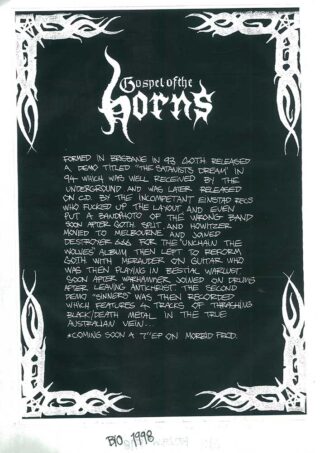 Gospel of the
Horns
FORMED IN BRISBANE IN 93 GOTH RELEASED
A DEMO TITLED "THE SATANISTS DREAM" IN
94 WHICH WAS WELL RECEIVED BY THE
UNDERGROUND AND WAS LATER RELEASED
ON C.D. BY THE INCOMPETANT EINSTAD RECS
WHO FUCKED UP THE LAYOUT AND EVEN
PUT A BANDPHOTO OF THE WRONG BAND
SOON AFTER GOTH SPLIT AND HOWITZER
MOVED TO MELBOURNE AND JOINED
DESTROYER 666 FOR THE 'UNCHAIN THE
WOLVES' ALBUM THEN LEFT TO REFORM
GOTH WITH MERAUDER ON GUITAR WHO
WAS THEN PLAYING IN BESTIAL WARLUST
SOON AFTER WARHAMMER JOINED ON DRUMS
AFTER LEAVING ANTICHRIST. THE SECOND
DEMO "SINNERS" WAS THEN RECORDED
WHICH FEATURES 4 TRACKS OF THRASHING
BLACK/DEATH METAL IN THE TRUE
AUSTRALIAN VEIN...
*COMING SOON A 7"EP ON MORBID PROD.
BIO 1998